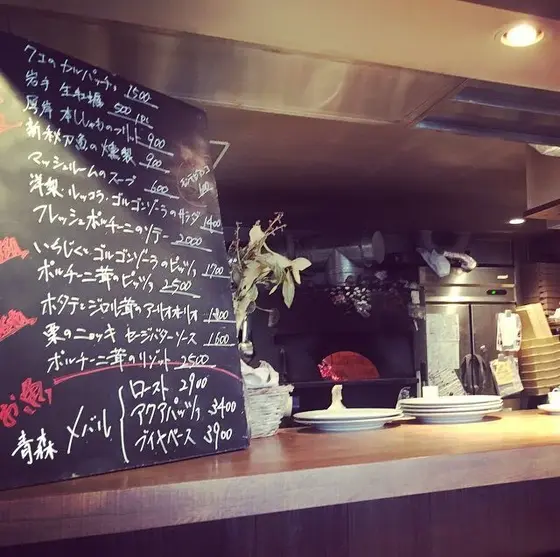 クエのカルパッチョ 1500
岩手 生牡蠣 500 1pc
厚岸 本ししゃものフリット 900
新秋刀魚の燻製 900
マッシュルームのスープ 600
洋梨・ルッコラ・ゴルゴンゾーラのサラダ 1400
フレッシュポルチーニのソテー 2000
いちじくとゴルゴンゾーラのピッツァ 1700
ポルチーニ茸のピッツァ 2500
ホタテとジロル茸のアーリオオーリオ 1800
栗のニョッキ セージバターソース 1600
ポルチーニ茸のリゾット 2500
お魚
青森 メバル
ロースト 2900
アクアパッツァ 3400
ブイヤベース 3900